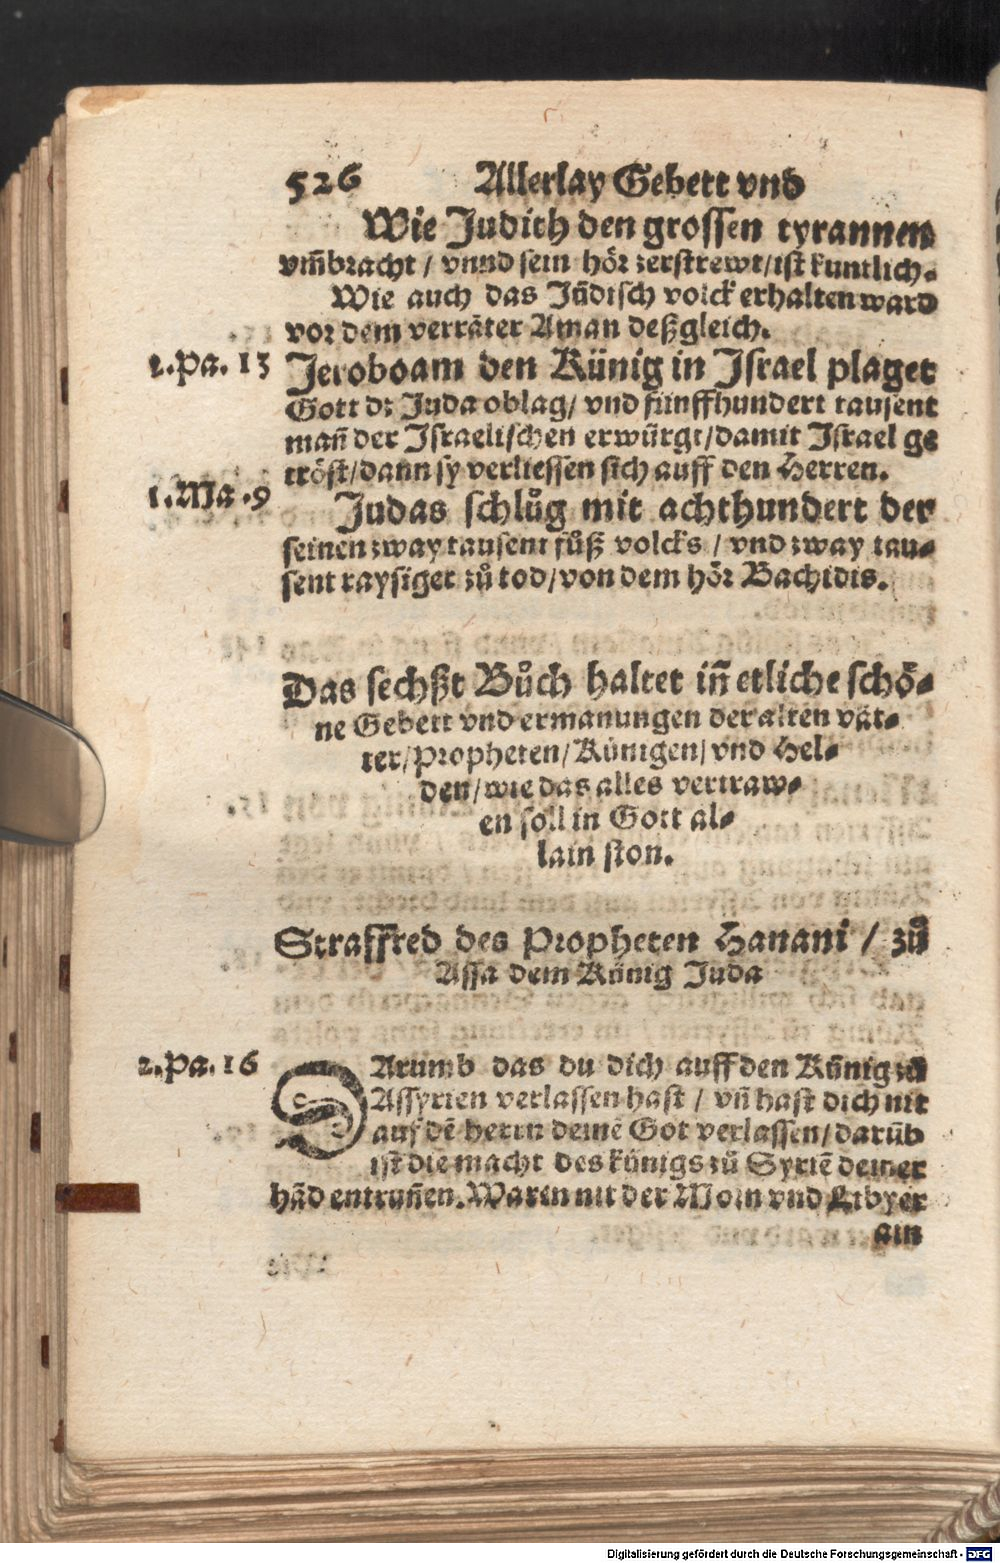 526 Allerlay Gebett vnd
Wie Judith den grossen tyrannen
vm̃bracht / vnnd sein hör zerstrewt/ist kuntlich.
Wie auch das Jüdisch volck erhalten ward
vor dem verräter Aman deßgleich.
2.Pa. 13 Jeroboam den Künig in Israel plaget
Gott dz Juda oblag/ vnd fünffhundert tausent
mañ der Israelischen erwürgt/damit Israel ge
tröst/dann sy verliessen sich auff den Herren.
1.Ma .9 Judas schlůg mit achthundert der
seinen zway tausent fůß volcks / vnd zway tau⸗
sent raysiger zů tod/von dem hör Bachidis.
Das sechßt Bůch haltet iñ etliche schö⸗
ne Gebett vnd ermanungen der alten vät⸗
ter/Propheten/Künigen/vnd Hel⸗
den/wie das alles vertraw⸗
en soll in Gott al⸗
lain ston.
Straffred des Propheten Hanani / zů
Assa dem Künig Juda
2.Pa. 16 DArumb das du dich auff den Künig zů
Assyrien verlassen hast / vñ hast dich nit
auf dē herrn deinē Got verlassen/darüb
ist die macht des künigs zů Syriē deiner
hād entruñen. Waren nit der Morn vnd Libyer
ain